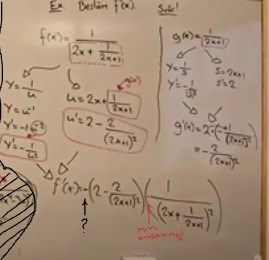 Ex. Bestäm f'(x). Svår!
f(x) = 1/(2x + 1/(2x+1))
g(x) = 1/(2x+1)
y = 1/u
y = u⁻¹
y' = -1/u²
u = 2x + 1/(2x+1)
u' = 2 - 2/(2x+1)²
y = 1/s
s = 2x+1
s' = 2
g'(x) = 2·(-1/(2x+1)²)
= -2/(2x+1)²
f'(x) = -(2 - 2/(2x+1)²)(1/(2x + 1/(2x+1))²)
?